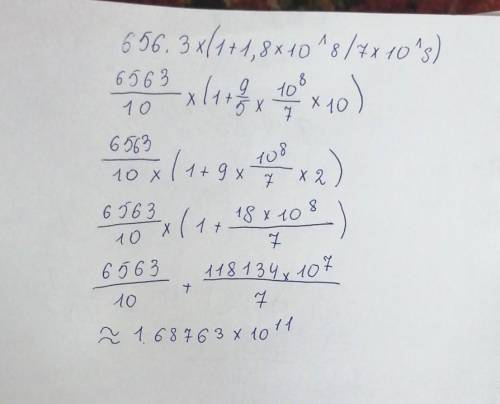 656.3×(1+1,8×10^8/7×10^8)
6563/10 ×(1+9/5×10⁸/7×10)
6563/10×(1+9×10⁸/7×2)
6563/10×(1+18×10⁸/7)
6563/10+118134×10⁷/7
≈1.68763×10¹¹